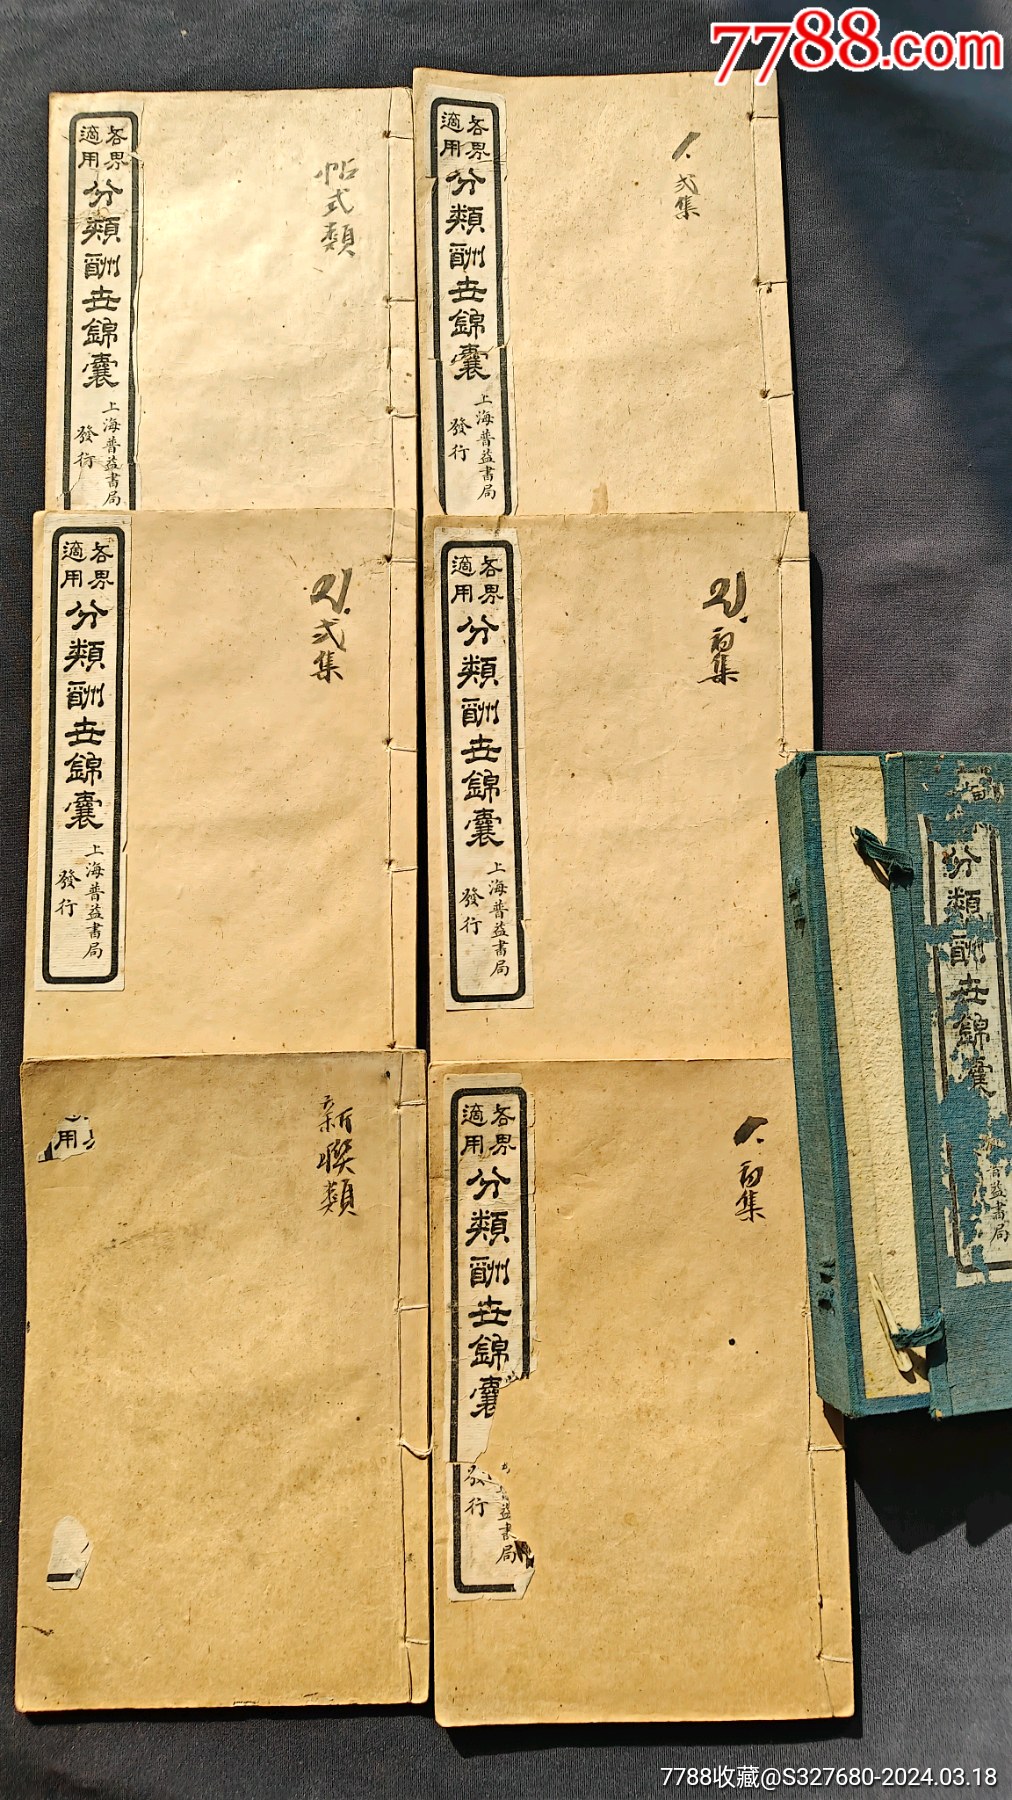 7788.com
各界
適用
分類酬世錦囊
上海普益書局
發行
帖式類
各界
適用
分類酬世錦囊
上海普益書局
發行
弍集
各界
適用
分類酬世錦囊
上海普益書局
發行
弍集
各界
適用
分類酬世錦囊
上海普益書局
發行
初集
用
聯類
各界
適用
分類酬世錦囊
益書局
發行
初集
分類酬世錦囊
普益書局
7788收藏@S327680-2024.03.18